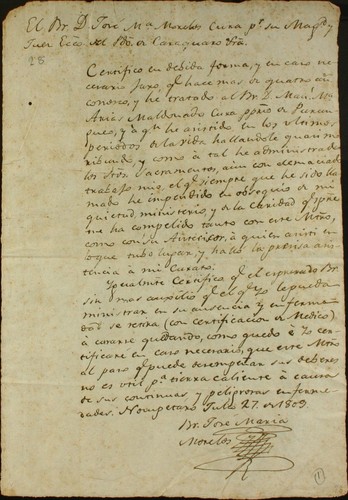 El Br. D. José Ma. Morelos Cura pr. su Magd. y
Juez Ecco. del Pdo. de Caraquaro &a.
28
Certifico en debida forma, y en caso ne-
cerario Juro, qe. hace mas de quatro añ
conosco, y he tratado al Br. D. Manl. Ma.
Arias Maldonado Cura de Purun
y á qn. he asistido en los ultimos
periodos de la vida hallandole quasi mo-
ribundo, y como á tal he administrado
los Stos. Sacramentos, aun con demaciado
trabajo mio, el qe. siempre que he sido lla-
mado he impendido en obsequio de mi
quietud, ministerio, y de la Caridad qe. spre
me ha compelido tanto con este Mtro,
como con su Antecesor, à quien asistí en
lo que tubo lugar, y hallo la precisa asis-
tencia à mi Curato.
Igualmte. Certifico qe. el expresado Br.
sin mas auxilio qe. el qe. Yo le pueda
ministrar en su ausencia y enferme-
dad se retira (con certificacion de Medico)
à curarse quedando, como quedo à Yo cer-
tificare en caso necesario, que este Mtro
al paso qe. puede desempeñar sus deberes
no es util pa. tierra caliente à causa
de sus continuas, y peligrosas enferme-
dades. Nocupetaro Julio 27. de 1809.
Br. José María
Morelos
(1)